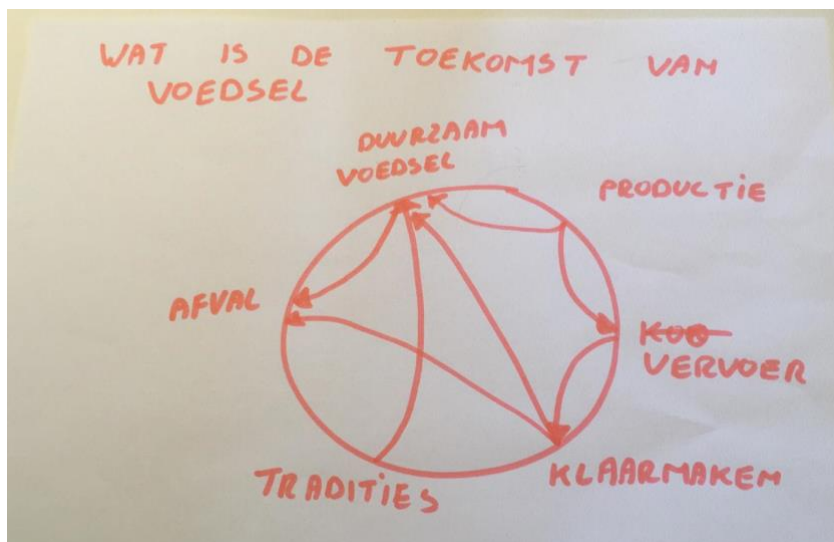 WAT IS DE TOEKOMST VAN
VOEDSEL
DUURZAAM
VOEDSEL
PRODUCTIE
AFVAL
KOO
VERVOER
TRADITIES
KLAARMAKEN